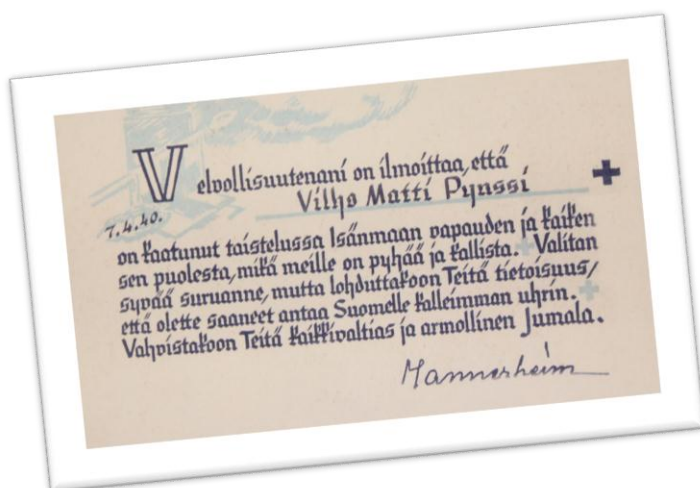 Velvollisuutenani on ilmoittaa, että
Vilho Matti Pynssi
7.4.40.
on kaatunut taistelussa Isänmaan vapauden ja kaiken
sen puolesta, mikä meille on pyhää ja kallista. Valitan
syvää suruanne, mutta lohduttakoon Teitä tietoisuus/
että olette saaneet antaa Suomelle kalleimman uhrin.
Vahvistakoon Teitä kaikkivaltias ja armollinen Jumala.
Mannerheim